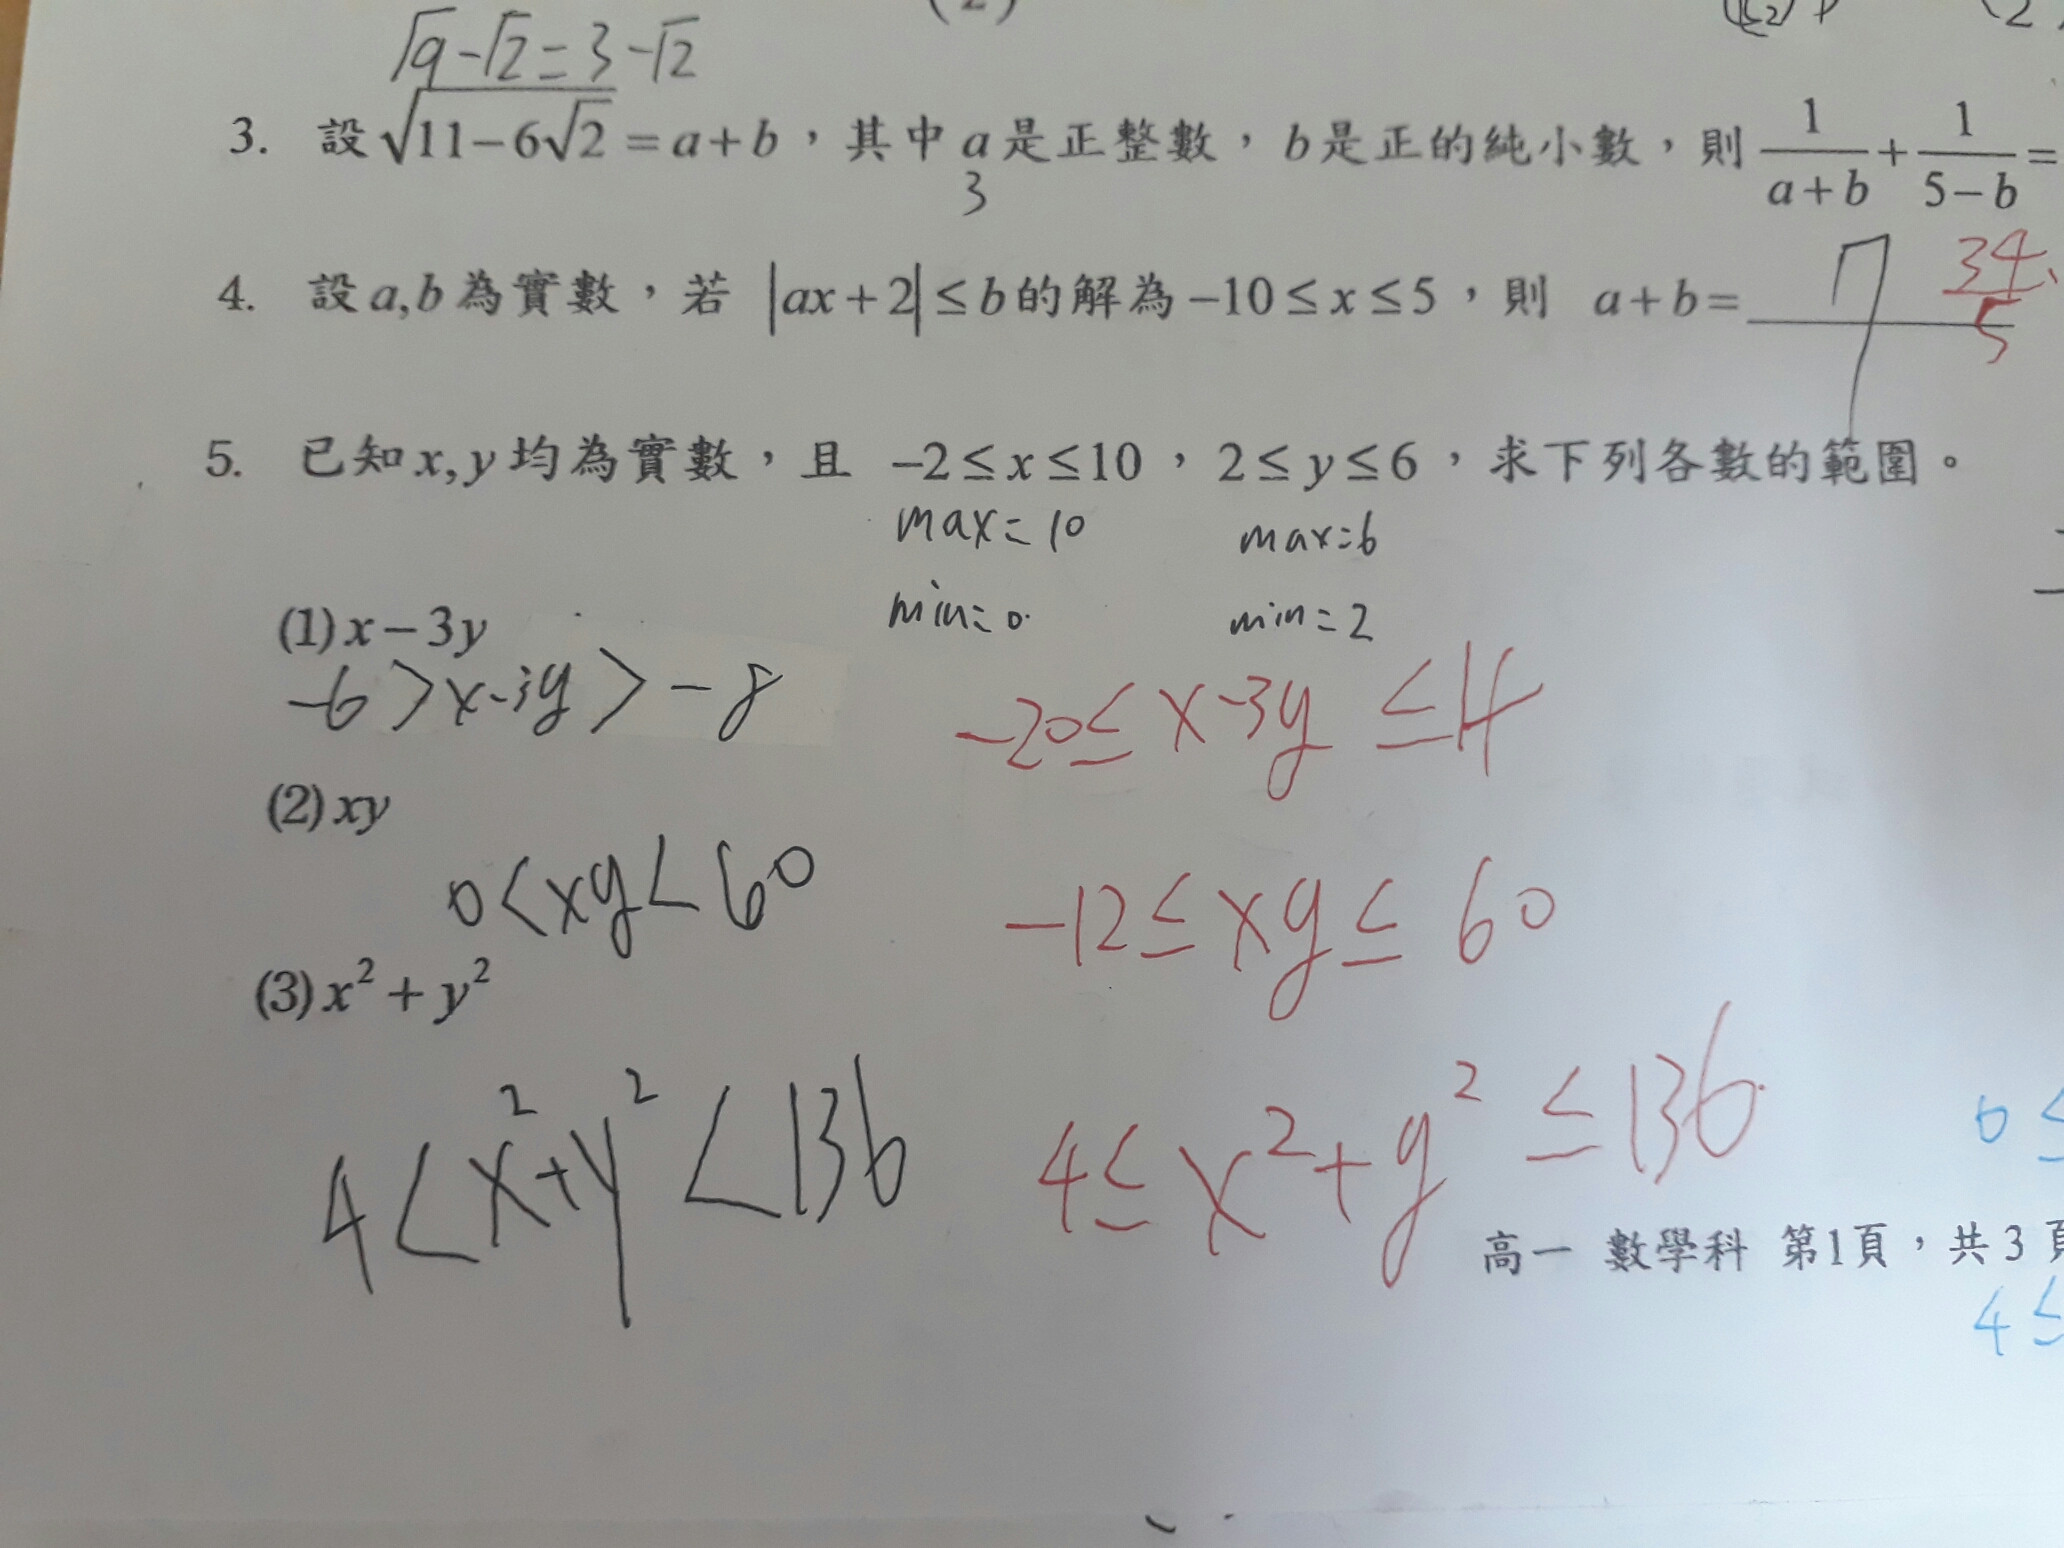 √9-√2=3-√2
3. 設√11-6√2=a+b，其中a是正整數，b是正的純小數，則 1/(a+b) + 1/(5-b) =
3
4. 設a,b為實數，若 |ax+2|≤b的解為-10≤x≤5，則 a+b= 34/5
5. 已知x,y均為實數，且 -2≤x≤10，2≤y≤6，求下列各數的範圍。
max=10 max=6
min=0 min=2
(1)x-3y
-6>x-3y>-8 -20≤x-3y≤4
(2)xy
0<xy<60 -12≤xy≤60
(3)x²+y²
4<x²+y²<136 4≤x²+y²≤136
高一 數學科 第1頁，共3頁
4≤